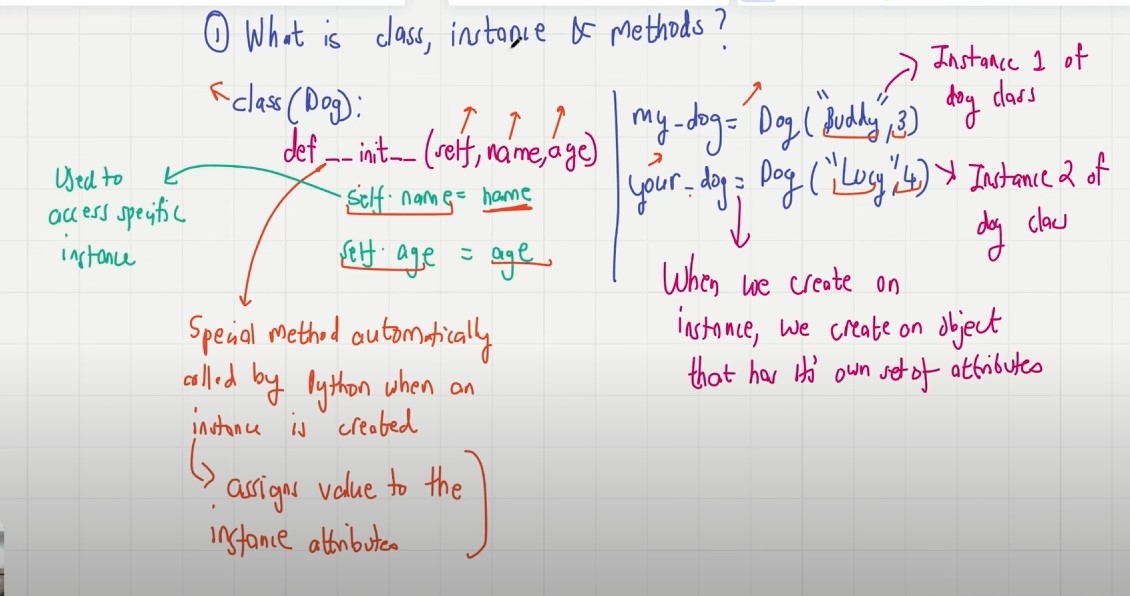 ① What is class, instance & methods?
class(Dog):
def __init__ (self, name, age)
self.name = name
self.age = age
Used to
access specific
instance
Special method automatically
called by Python when an
instance is created
assigns value to the
instance attributes
my_dog = Dog("Buddy", 3)
your_dog = Dog("Lucy", 4)
Instance 1 of
dog class
Instance 2 of
dog class
When we create an
instance, we create an object
that has its' own set of attributes